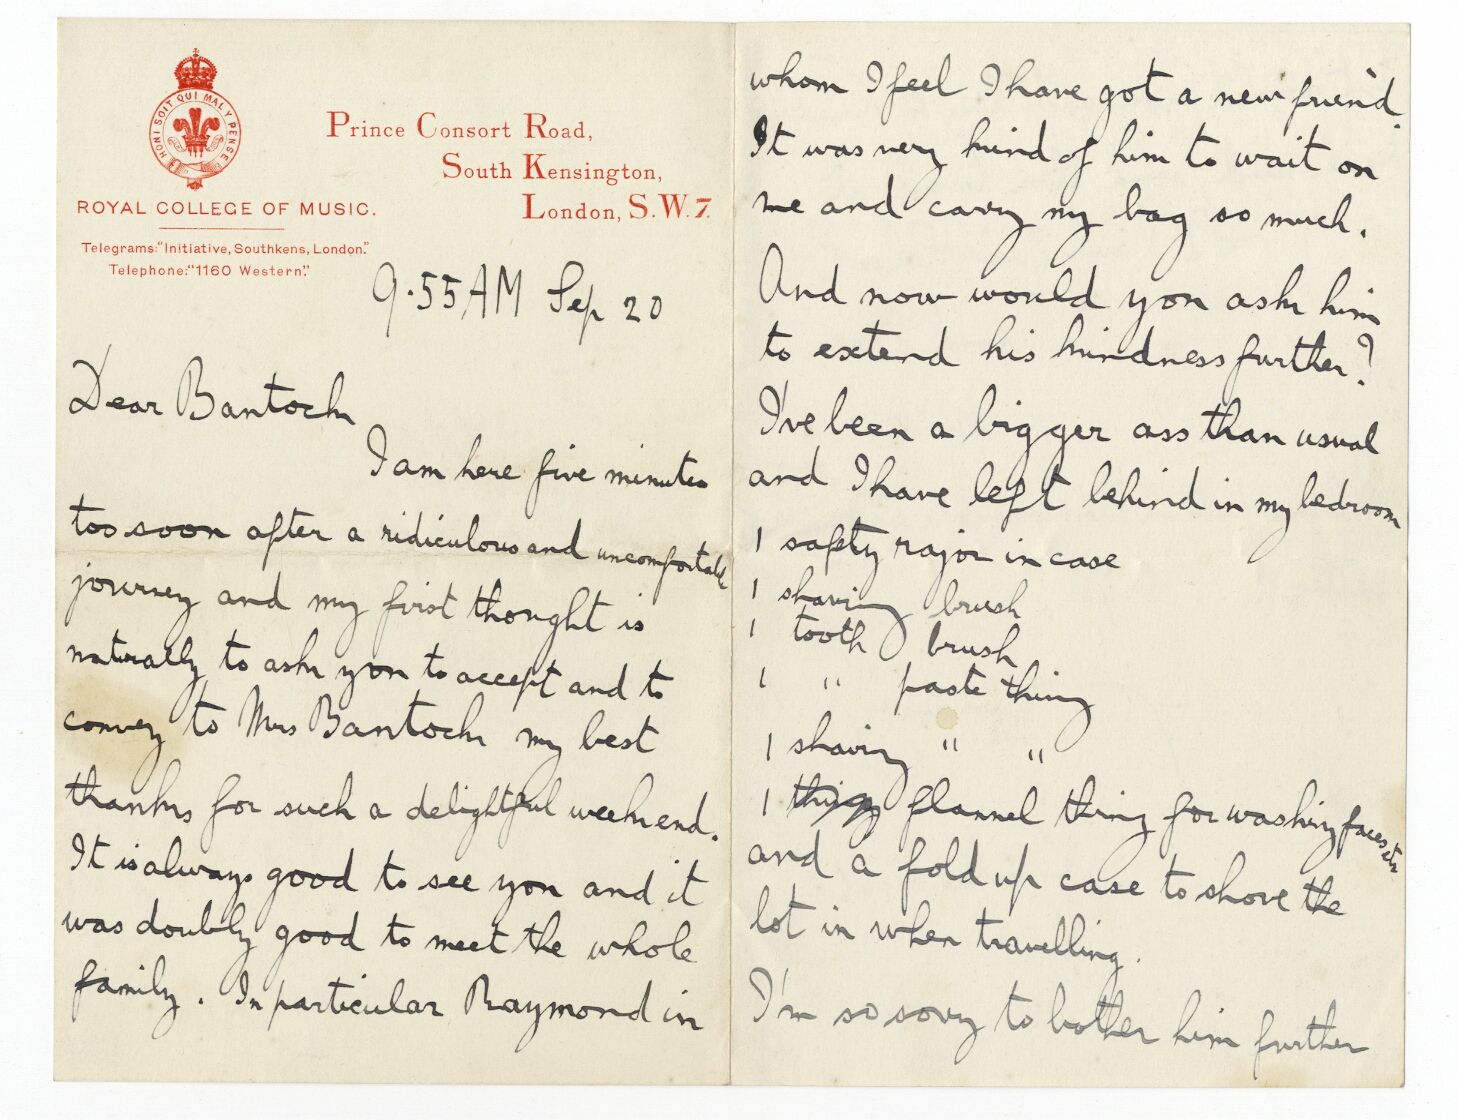 HONI SOIT QUI MAL Y PENSE
ROYAL COLLEGE OF MUSIC.
Telegrams: "Initiative, Southkens, London."
Telephone: "1160 Western."
Prince Consort Road,
South Kensington,
London, S.W.7.
9.55AM Sep 20
Dear Bantock
I am here five minutes
too soon after a ridiculous and uncomfortable
journey and my first thought is
naturally to ask you to accept and to
convey to Mrs Bantock my best
thanks for such a delightful weekend.
It is always good to see you and it
was doubly good to meet the whole
family. In particular Raymond in
whom I feel I have got a new friend.
It was very kind of him to wait on
me and carry my bag so much.
And now would you ask him
to extend his kindness further?
I've been a bigger ass than usual
and I have left behind in my bedroom
1 safety razor in case
1 shaving brush
1 tooth brush
1 " paste thing
1 shaving " "
1 things flannel thing for washing faces etc
and a fold up case to shove the
lot in when travelling.
I'm so sorry to bother him further